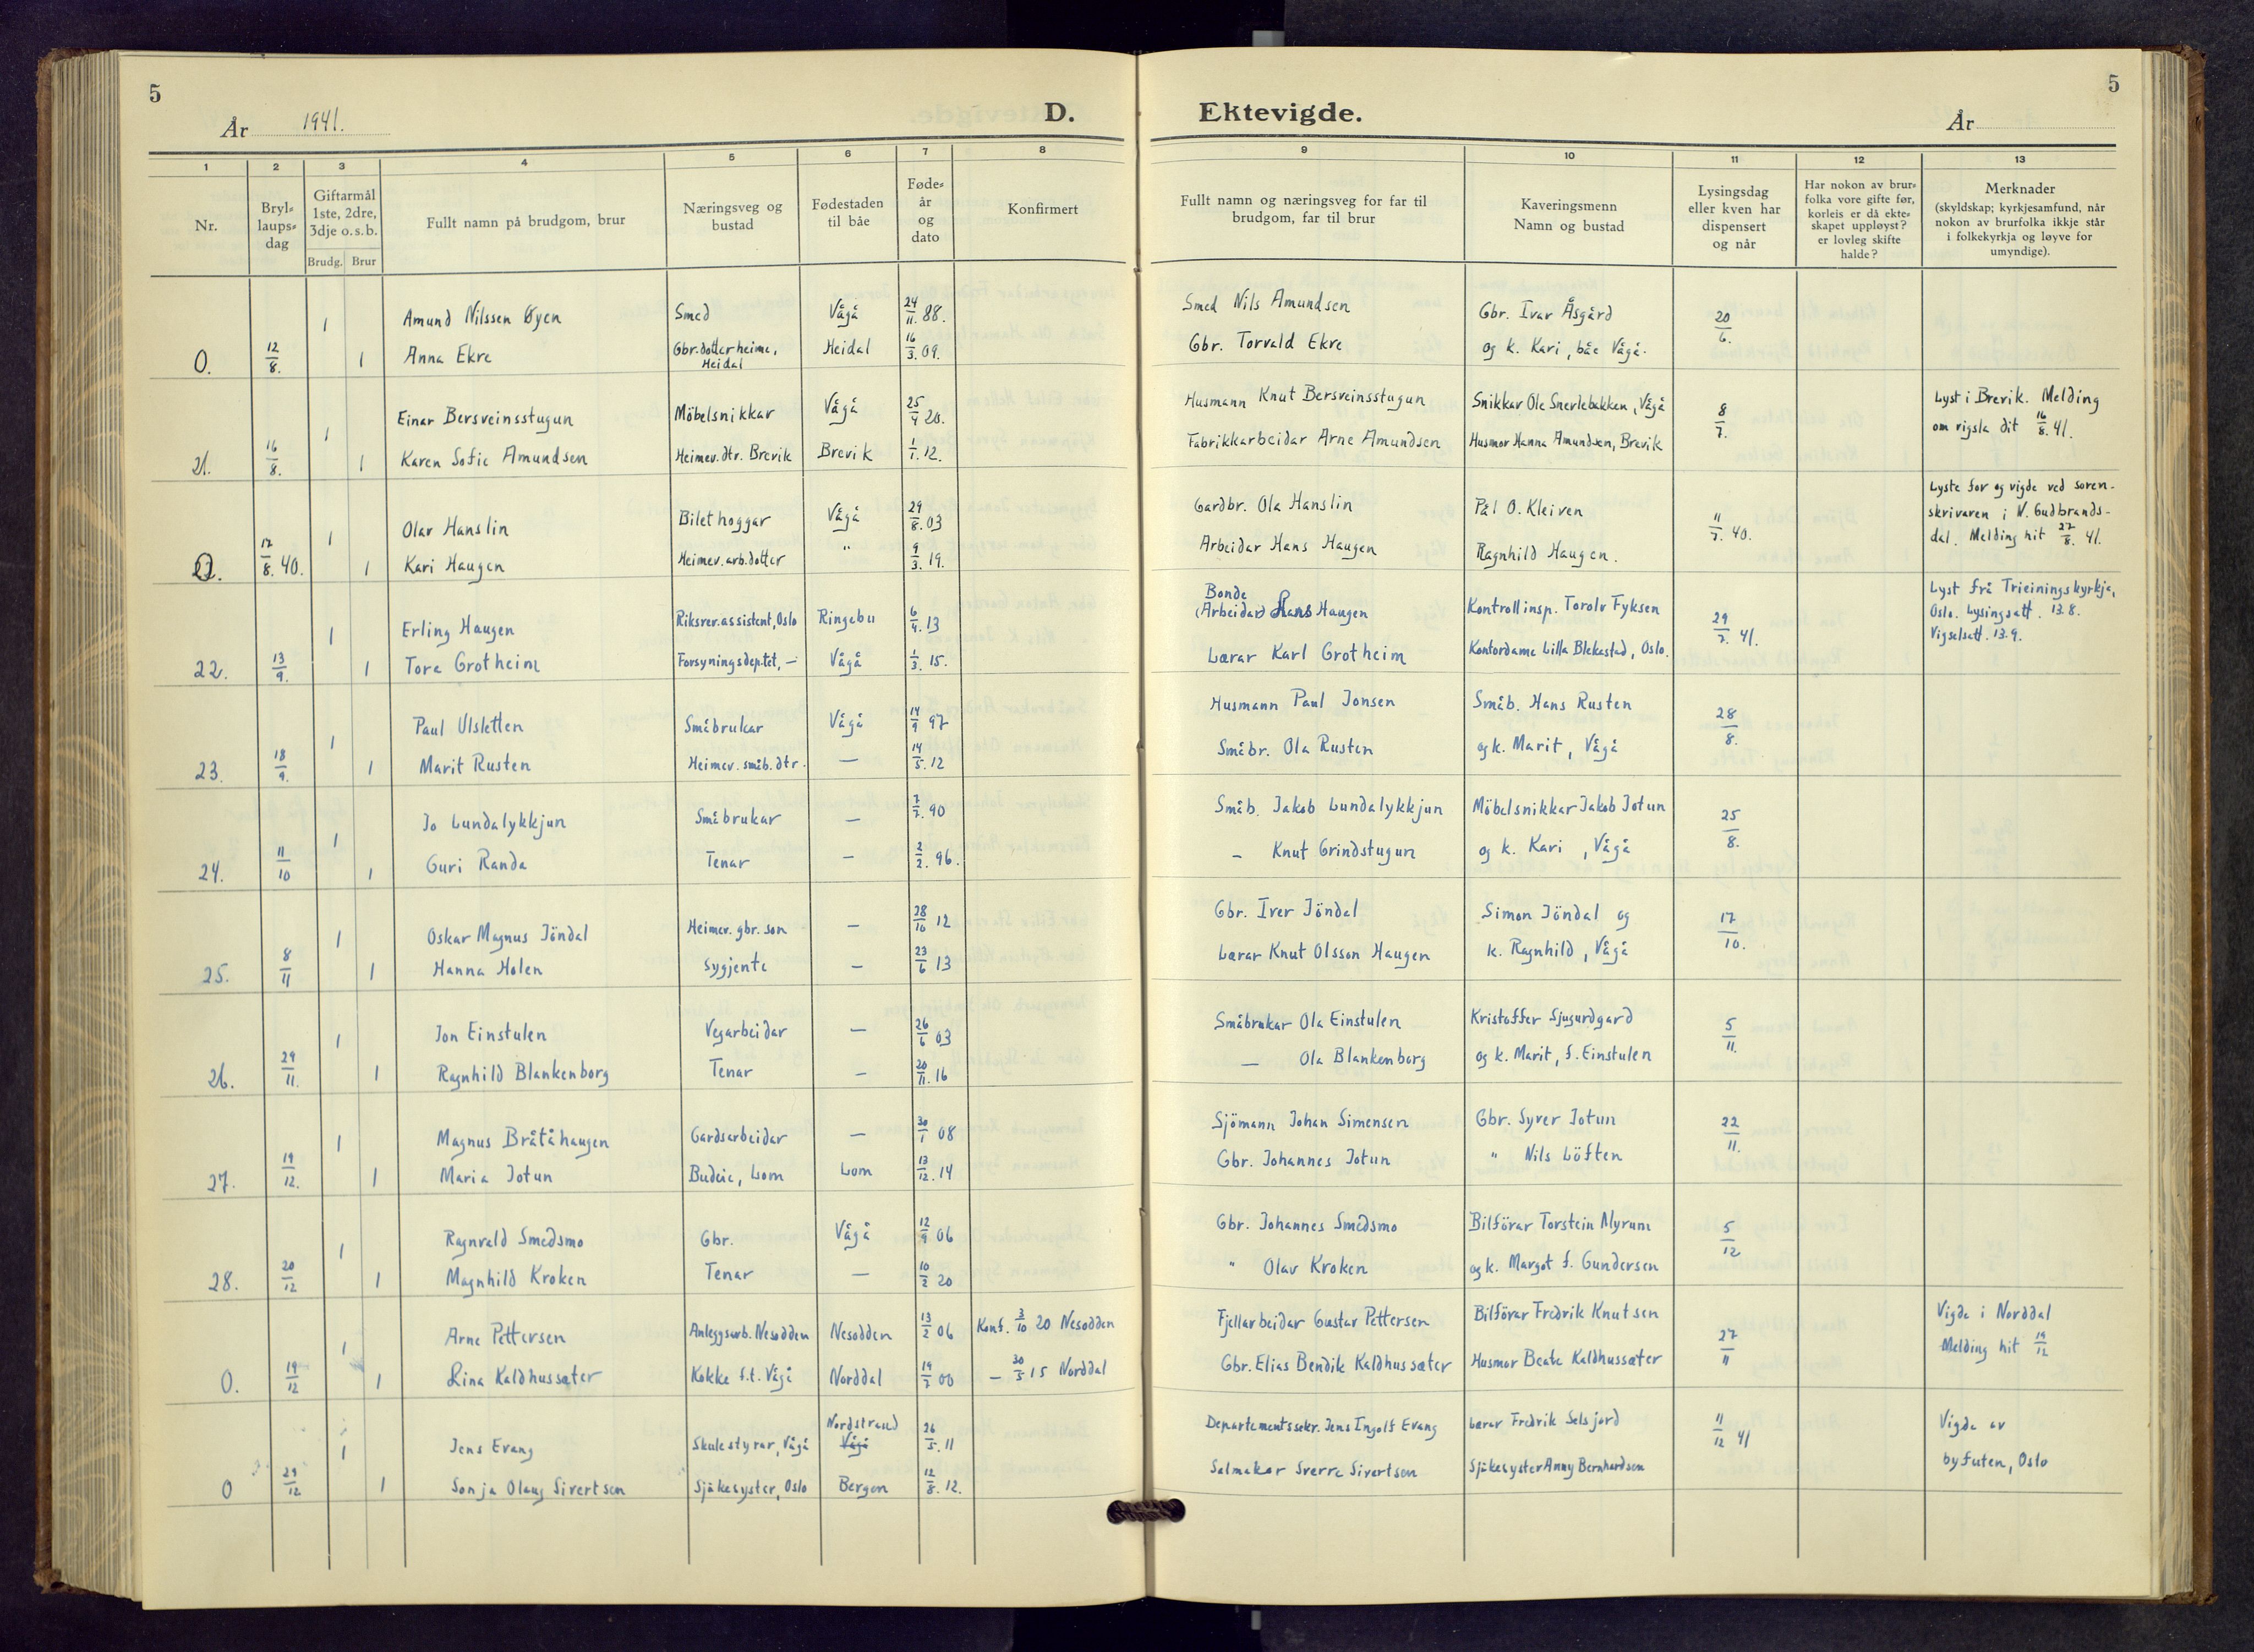 5
År 1941.
D.
Ektevigde.
År
5
1 2 3 4 5 6 7 8 9 10 11 12 13
Nr.
Bryl-
laups-
dag
Giftarmål
1ste, 2dre,
3dje o. s. b.
Brudg. Brur
Fullt namn på brudgom, brur
Næringsveg og
bustad
Fødestaden
til båe
Føde-
år
og
dato
Konfirmert
Fullt namn og næringsveg for far til
brudgom, far til brur
Kaveringsmenn
Namn og bustad
Lysingsdag
eller kven har
dispensert
og når
Har nokon av brur-
folka vore gifte før,
korleis er då ekte-
skapet uppløyst?
er lovleg skifte
halde?
Merknader
(skyldskap; kyrkjesamfund, når
nokon av brurfolka ikkje står
i folkekyrkja og løyve for
umyndige).
1 Amund Nilssen Öyen Smed Vågå 24/11. 88. Smed Nils Amundsen Gbr. Ivar Åsgård 20/6.
0. 12/8. 1 Anna Ekre Gbr.dotter heime, Heidal 16/3. 09. Gbr. Torvald Ekre og k. Kari, båe Vågå.
Heidal
1 Einar Bersveinsstugun Möbelsnikkar Vågå 25/4 20. Husmann Knut Bersveinsstugun Snikkar Ole Snerlebakken, Vågå 8/7. Lyst i Brevik. Melding
21. 16/8. 1 Karen Sofie Amundsen Heimev. dtr. Brevik Brevik 1/1. 12. Fabrikkarbeidar Arne Amundsen Husmor Hanna Amundsen, Brevik om vigsla dit 16/8. 41.
1 Olav Hanslin Bilethoggar Vågå 29/8. 03 Gardbr. Ola Hanslin Pål O. Kleiven 11/7. 40. Lyste for og vigde ved soren-
skrivaren i N. Gudbrands-
0. 17/8. 40. 1 Kari Haugen Heimev. arb.dotter " 9/3. 19. Arbeidar Hans Haugen Ragnhild Haugen. dal. Melding hit 27/8. 41.
Bonde
1 Erling Haugen Riksrev.assistent, Oslo Ringebu 6/4. 13 (Arbeidar) Hans Haugen Kontrollinsp. Torolv Fyksen 29/7. 41. Lyst frå Trieiningskyrkja,
Oslo. Lysingsatt. 13.8.
22. 13/9. 1 Tora Grotheim Forsyningsdep.tet, — Vågå 1/3. 15. Lærar Karl Grotheim Kontordame Lilla Blekastad, Oslo. Vigselsatt. 13.9.
1 Paul Ulsletten Småbrukar Vågå 14/9 97 Husmann Paul Jonsen Småb. Hans Rusten 28/8.
23. 18/9. 1 Marit Rusten Heimev. småb. dtr. — 14/5. 12 Småbr. Ola Rusten og k. Marit, Vågå
1 Jo Lundalykkjun Småbrukar — 7/7. 90 Småb. Jakob Lundalykkjun Möbelsnikkar Jakob Jotun 25/8.
24. 11/10 1 Guri Randa Tenar — 2/2. 96. — Knut Grindstugun og k. Kari, Vågå
1 Oskar Magnus Jöndal Heimev. gbr. son — 28/10 12 Gbr. Iver Jöndal Simon Jöndal og 17/10.
25. 8/11 1 Hanna Holen Sygjente — 23/6 13 Lærar Knut Olsson Haugen k. Ragnhild, Vågå
1 Jon Einstulen Vegarbeidar — 26/6 03 Småbrukar Ola Einstulen Kristoffer Sjugurdgard 5/11.
26. 29/11. 1 Ragnhild Blankenborg Tenar — 20/11. 16 — Ola Blankenborg og k. Marit, f. Einstulen
1 Magnus Bråtåhaugen Gardsarbeidar — 30/1 08 Sjömann Johan Simensen Gbr. Syver Jotun 22/11.
27. 19/12. 1 Maria Jotun Budeie, Lom Lom 13/12. 14 Gbr. Johannes Jotun " Nils Löften
1 Ragnvald Smedsmo Gbr. Vågå 12/9 06 Gbr. Johannes Smedsmo Bilförar Torstein Myrum 5/12
28. 20/12 1 Magnhild Kroken Tenar — 10/2 20 " Olav Kroken og k. Margot f. Gundersen
1 Arne Pettersen Anleggsarb. Nesodden Nesodden 13/2 06 Konf. 3/10 20 Nesodden Fjellarbeidar Gustav Pettersen Bilförar Fredrik Knutsen 27/11 Vigde i Norddal
0. 19/12 1 Lina Kaldhussæter Kokke f.t. Vågå Norddal 19/7 00 — 30/5 15 Norddal Gbr. Elias Bendik Kaldhussæter Husmor Beate Kaldhussæter Melding hit 19/12
Nordstrand
1 Jens Evang Skulestyrar, Vågå Vågå 26/5. 11 Departementssekr. Jens Ingolf Evang Lærar Fredrik Selsjord 11/12 41 Vigde av
0 29/12 1 Sonja Olaug Sivertsen Sjukesyster, Oslo Bergen 12/8. 12. Salmakar Sverre Sivertsen Sjukesyster Anny Bernhardsen byfuten, Oslo